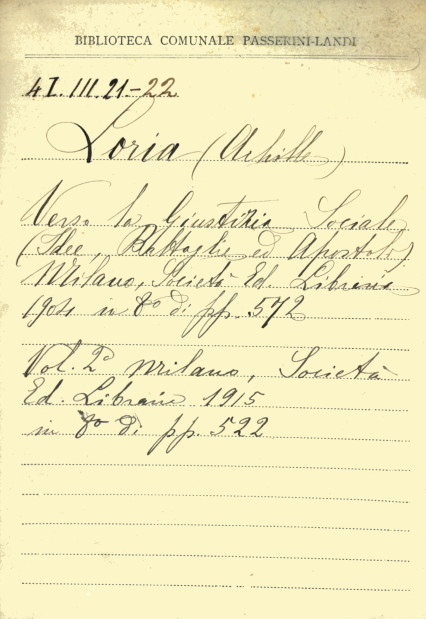 BIBLIOTECA COMUNALE PASSERINI-LANDI
4I.III.21-22
Loria (Achille)
Verso la Giustizia Sociale
(Idee, Battaglie ed Apostoli)
Milano, Società Ed. Libraria
1904 in 8º di pp. 572
Vol. 2º Milano, Società
Ed. Libraria 1915
in 8º di pp. 522